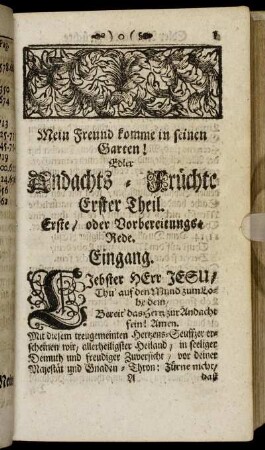 Mein Freund komme in seinen
Garten!
Edler
Andachts-Früchte
Erster Theil.
Erste/ oder Vorbereitungs-
Rede.
Eingang.
LIebster HErr JESU/
Thu' auf den Mund zum Lo-
be dein/
Bereit' das Hertz zur Andacht
sein! Amen.
Mit diesem treugemeinten Hertzens-Seuffzer er-
scheinen wir/ allerheiligster Heiland/ in seeliger
Demuth und freudiger Zuversicht/ vor deiner
Majestät und Gnaden-Thron: Zürne nicht/
A
daß